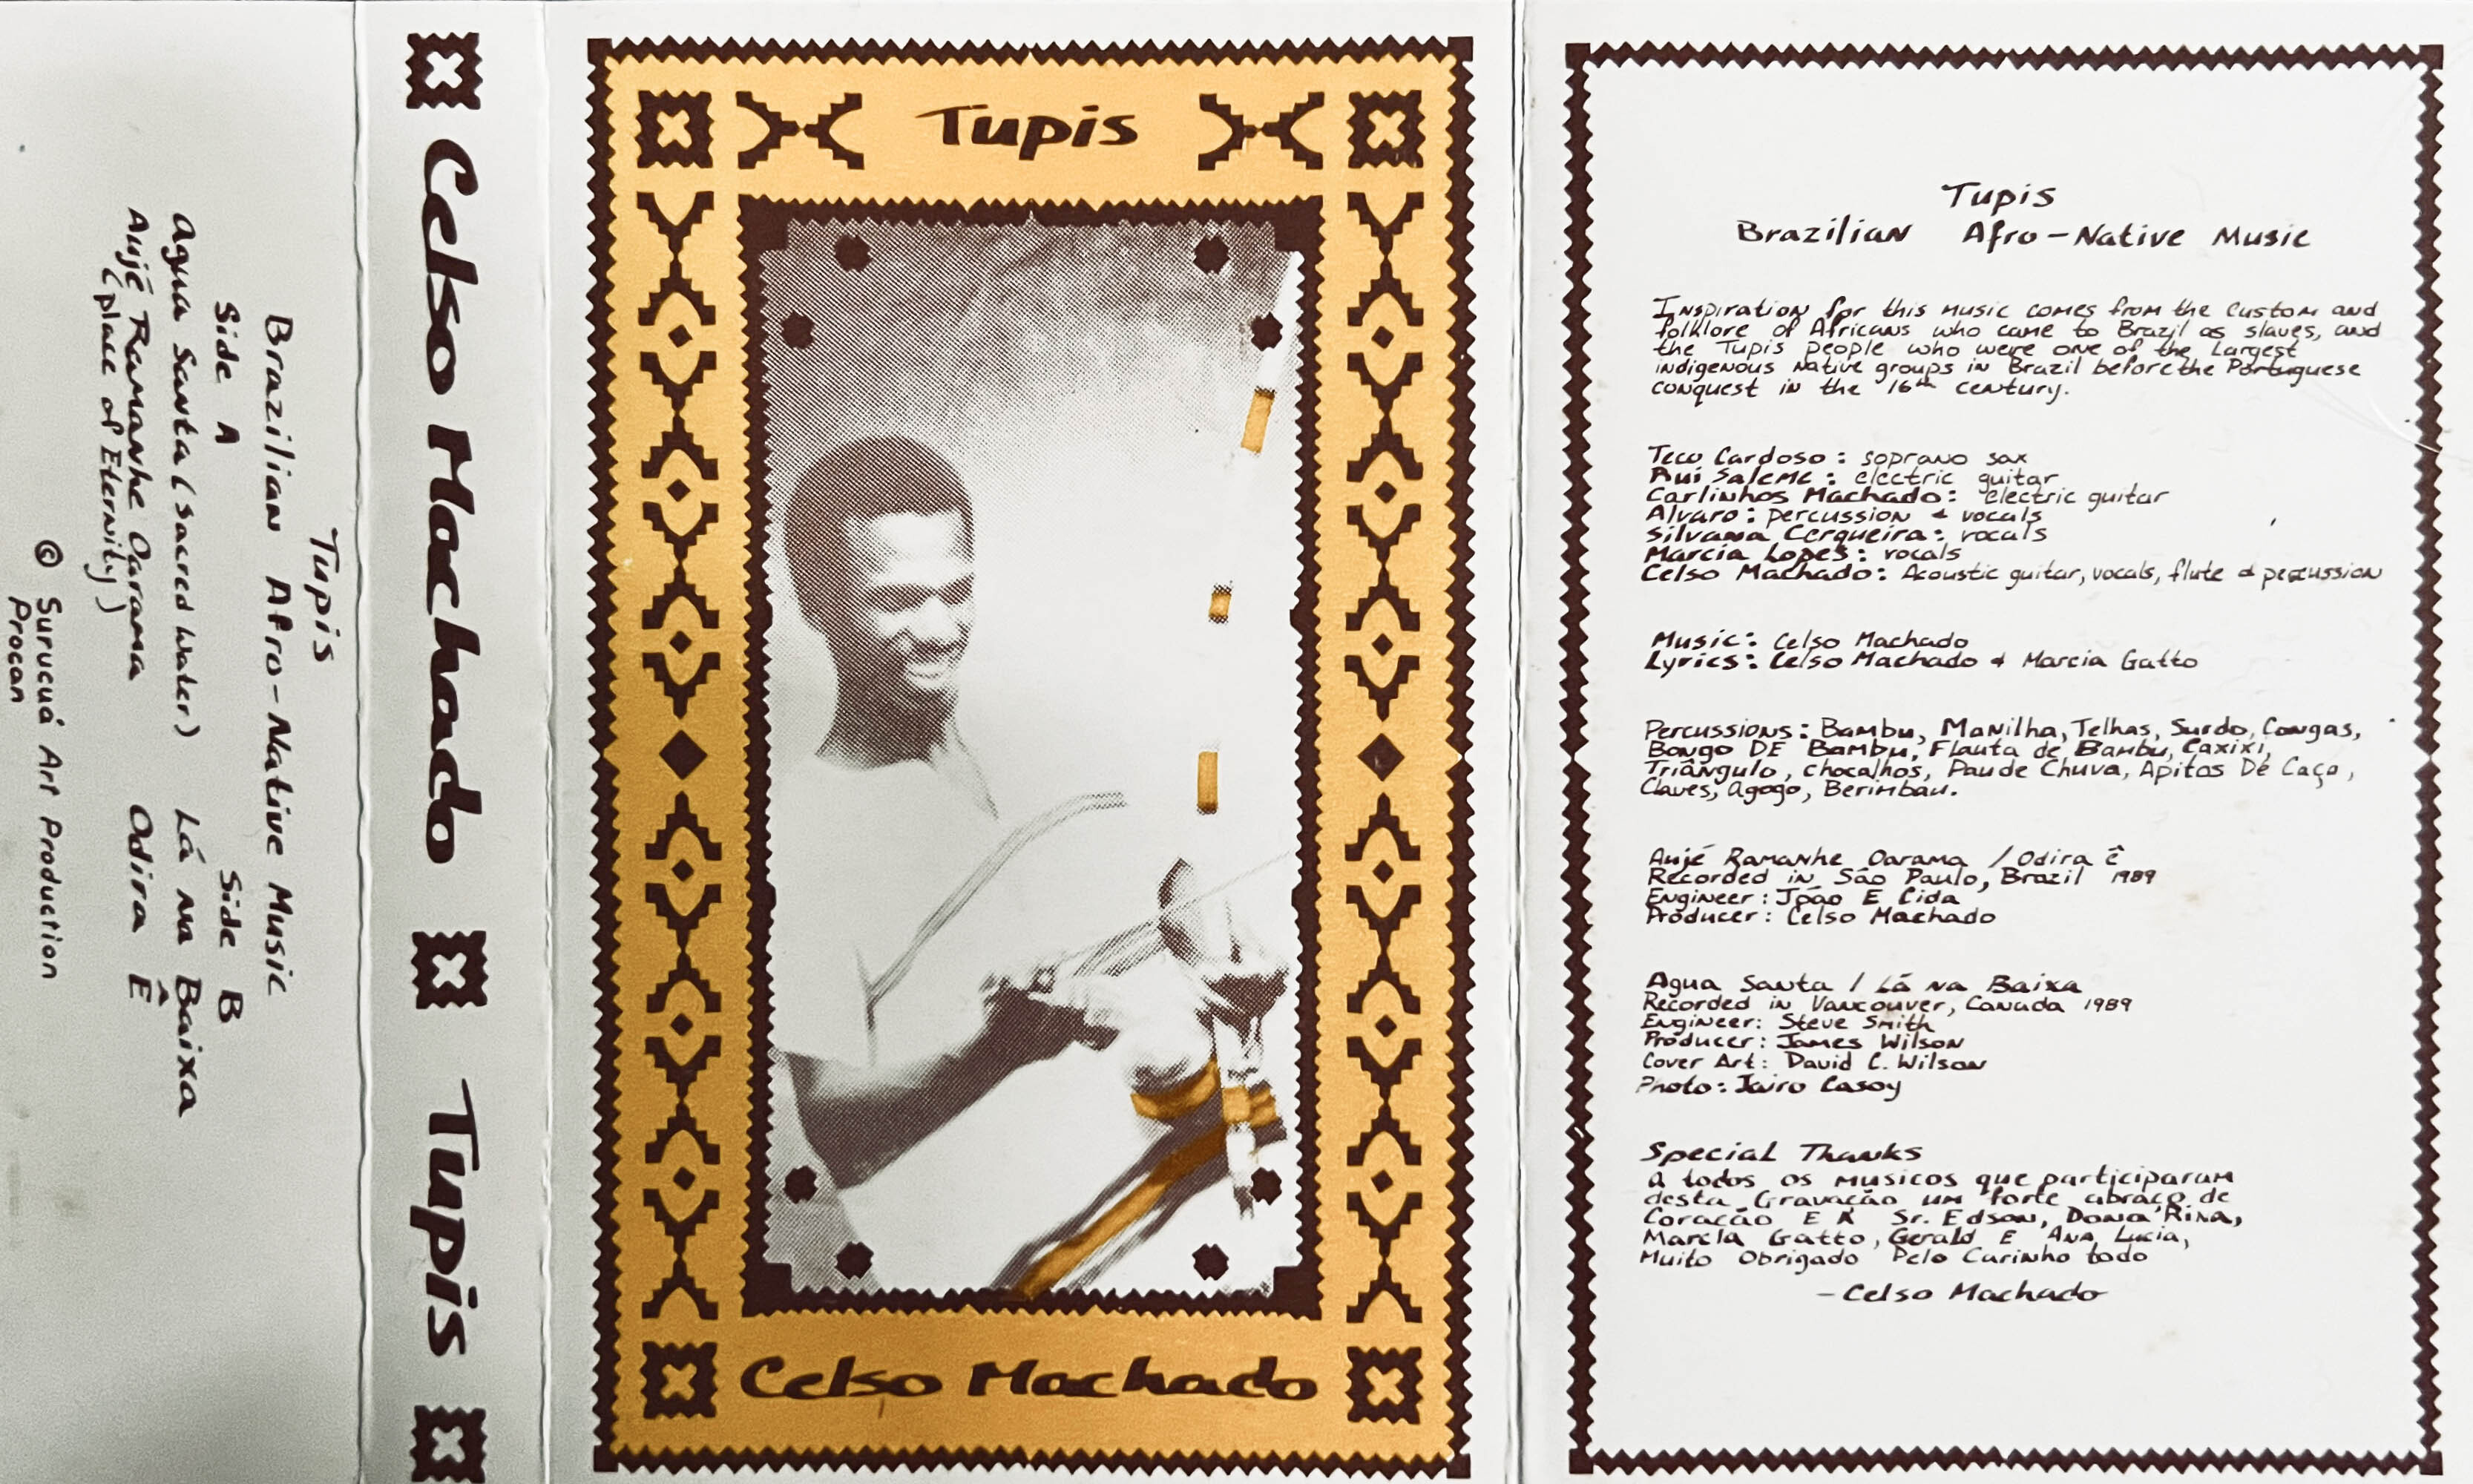 Tupis
Brazilian Afro-Native Music
Side A
Agua Santa (Sacred Water)
Aujé Ramanhe Oarama
(place of Eternity)
Side B
Lá na Baixa
Odira Ê
© Surucuá Art Production
Procan
Celso Machado Tupis
Tupis
Celso Machado
Tupis
Brazilian Afro-Native Music
Inspiration for this music comes from the custom and
folklore of Africans who came to Brazil as slaves, and
the Tupis people who were one of the largest
indigenous native groups in Brazil before the Portuguese
conquest in the 16th century.
Teco Cardoso: soprano sax
Rui Saleme: electric guitar
Carlinhos Machado: electric guitar
Alvaro: percussion & vocals
Silvana Cerqueira: vocals
Marcia Lopes: vocals
Celso Machado: Acoustic guitar, vocals, flute & percussion
Music: Celso Machado
Lyrics: Celso Machado & Marcia Gatto
Percussions: Bambu, Manilha, Telhas, Surdo, Congas,
Bongo DE Bambu, Flauta de Bambu, Caxixi,
Triângulo, chocalhos, Pau de Chuva, Apitos De Caça,
Claves, Agogo, Berimbau.
Aujé Ramanhe Oarama / Odira ê
Recorded in São Paulo, Brazil 1989
Engineer: João E Cida
Producer: Celso Machado
Agua Santa / Lá na Baixa
Recorded in Vancouver, Canada 1989
Engineer: Steve Smith
Producer: James Wilson
Cover Art: David C. Wilson
Photo: Jairo Casoy
Special Thanks
A todos os musicos que participaram
desta Gravação um forte abraço de
Coração E A Sr. Edson, Dona Rina,
Marcia Gatto, Gerald E Ana Lucia,
Muito Obrigado Pelo Carinho todo
-Celso Machado